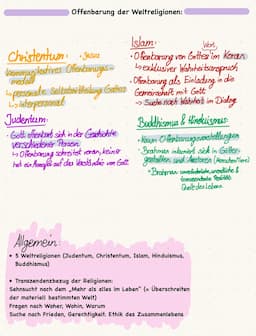 Offenbarung der Weltreligionen:
Christentum: Jesus
kommunikatives Offenbarungs-
modell
↳ personale Selbstmitteilung Gottes
↳ interpersonal
Judentum:
• Gott offenbart sich in der Geschichte
verschiedener Personen
↳ Offenbarung schreitet voran, keiner
hat ein Anspruch auf das Wort von Gott
Islam: Wort
• Offenbarung von Gottes im Koran
↳ exklusiver Wahrheitsanspruch
• Offenbarung als Einladung in die
Gemeinschaft mit Gott
↳ Suche nach Wahrheit im Dialog
Buddhismus & Hinduismus:
• Kein Offenbarungsvorstellungen
• Brahman inkarniert sich in Götter-
gestalten und Avataren (Menschen/Tiere)
• Brahman: unveränderliche, unendliche &
Realität
Quelle des Lebens
Allgemein:
• 5 Weltreligionen (Judentum, Christentum, Islam, Hinduismus,
Buddhismus)
• Transzendenzbezug der Religionen:
Sehnsucht nach dem „Mehr als alles im Leben" (= Überschreiten
der materiell bestimmten Welt)
Fragen nach Woher, Wohin, Warum
Suche nach Frieden, Gerechtigkeit, Ethik des Zusammenlebens